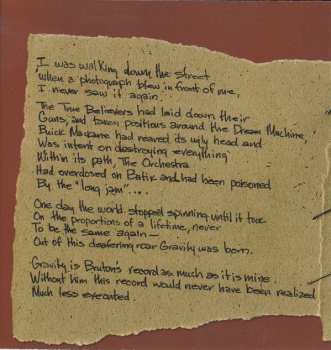 I was walking down the street
when a photograph blew in front of me,
I never saw it again.
The True Believers had laid down their
Guns, and taken positions around the Dream Machine,
Buick Makane had reared its ugly head and
Was intent on destroying "everything"
Within its path, The Orchestra
Had overdosed on Batix and had been poisoned
By the "long jam"...
One day the world stopped spinning until it took
On the proportions of a lifetime, never
To be the same again—
Out of this deafening roar Gravity was born.
Gravity is Bruton's record as much as it is mine.
Without him this record would never have been realized
Much less executed.